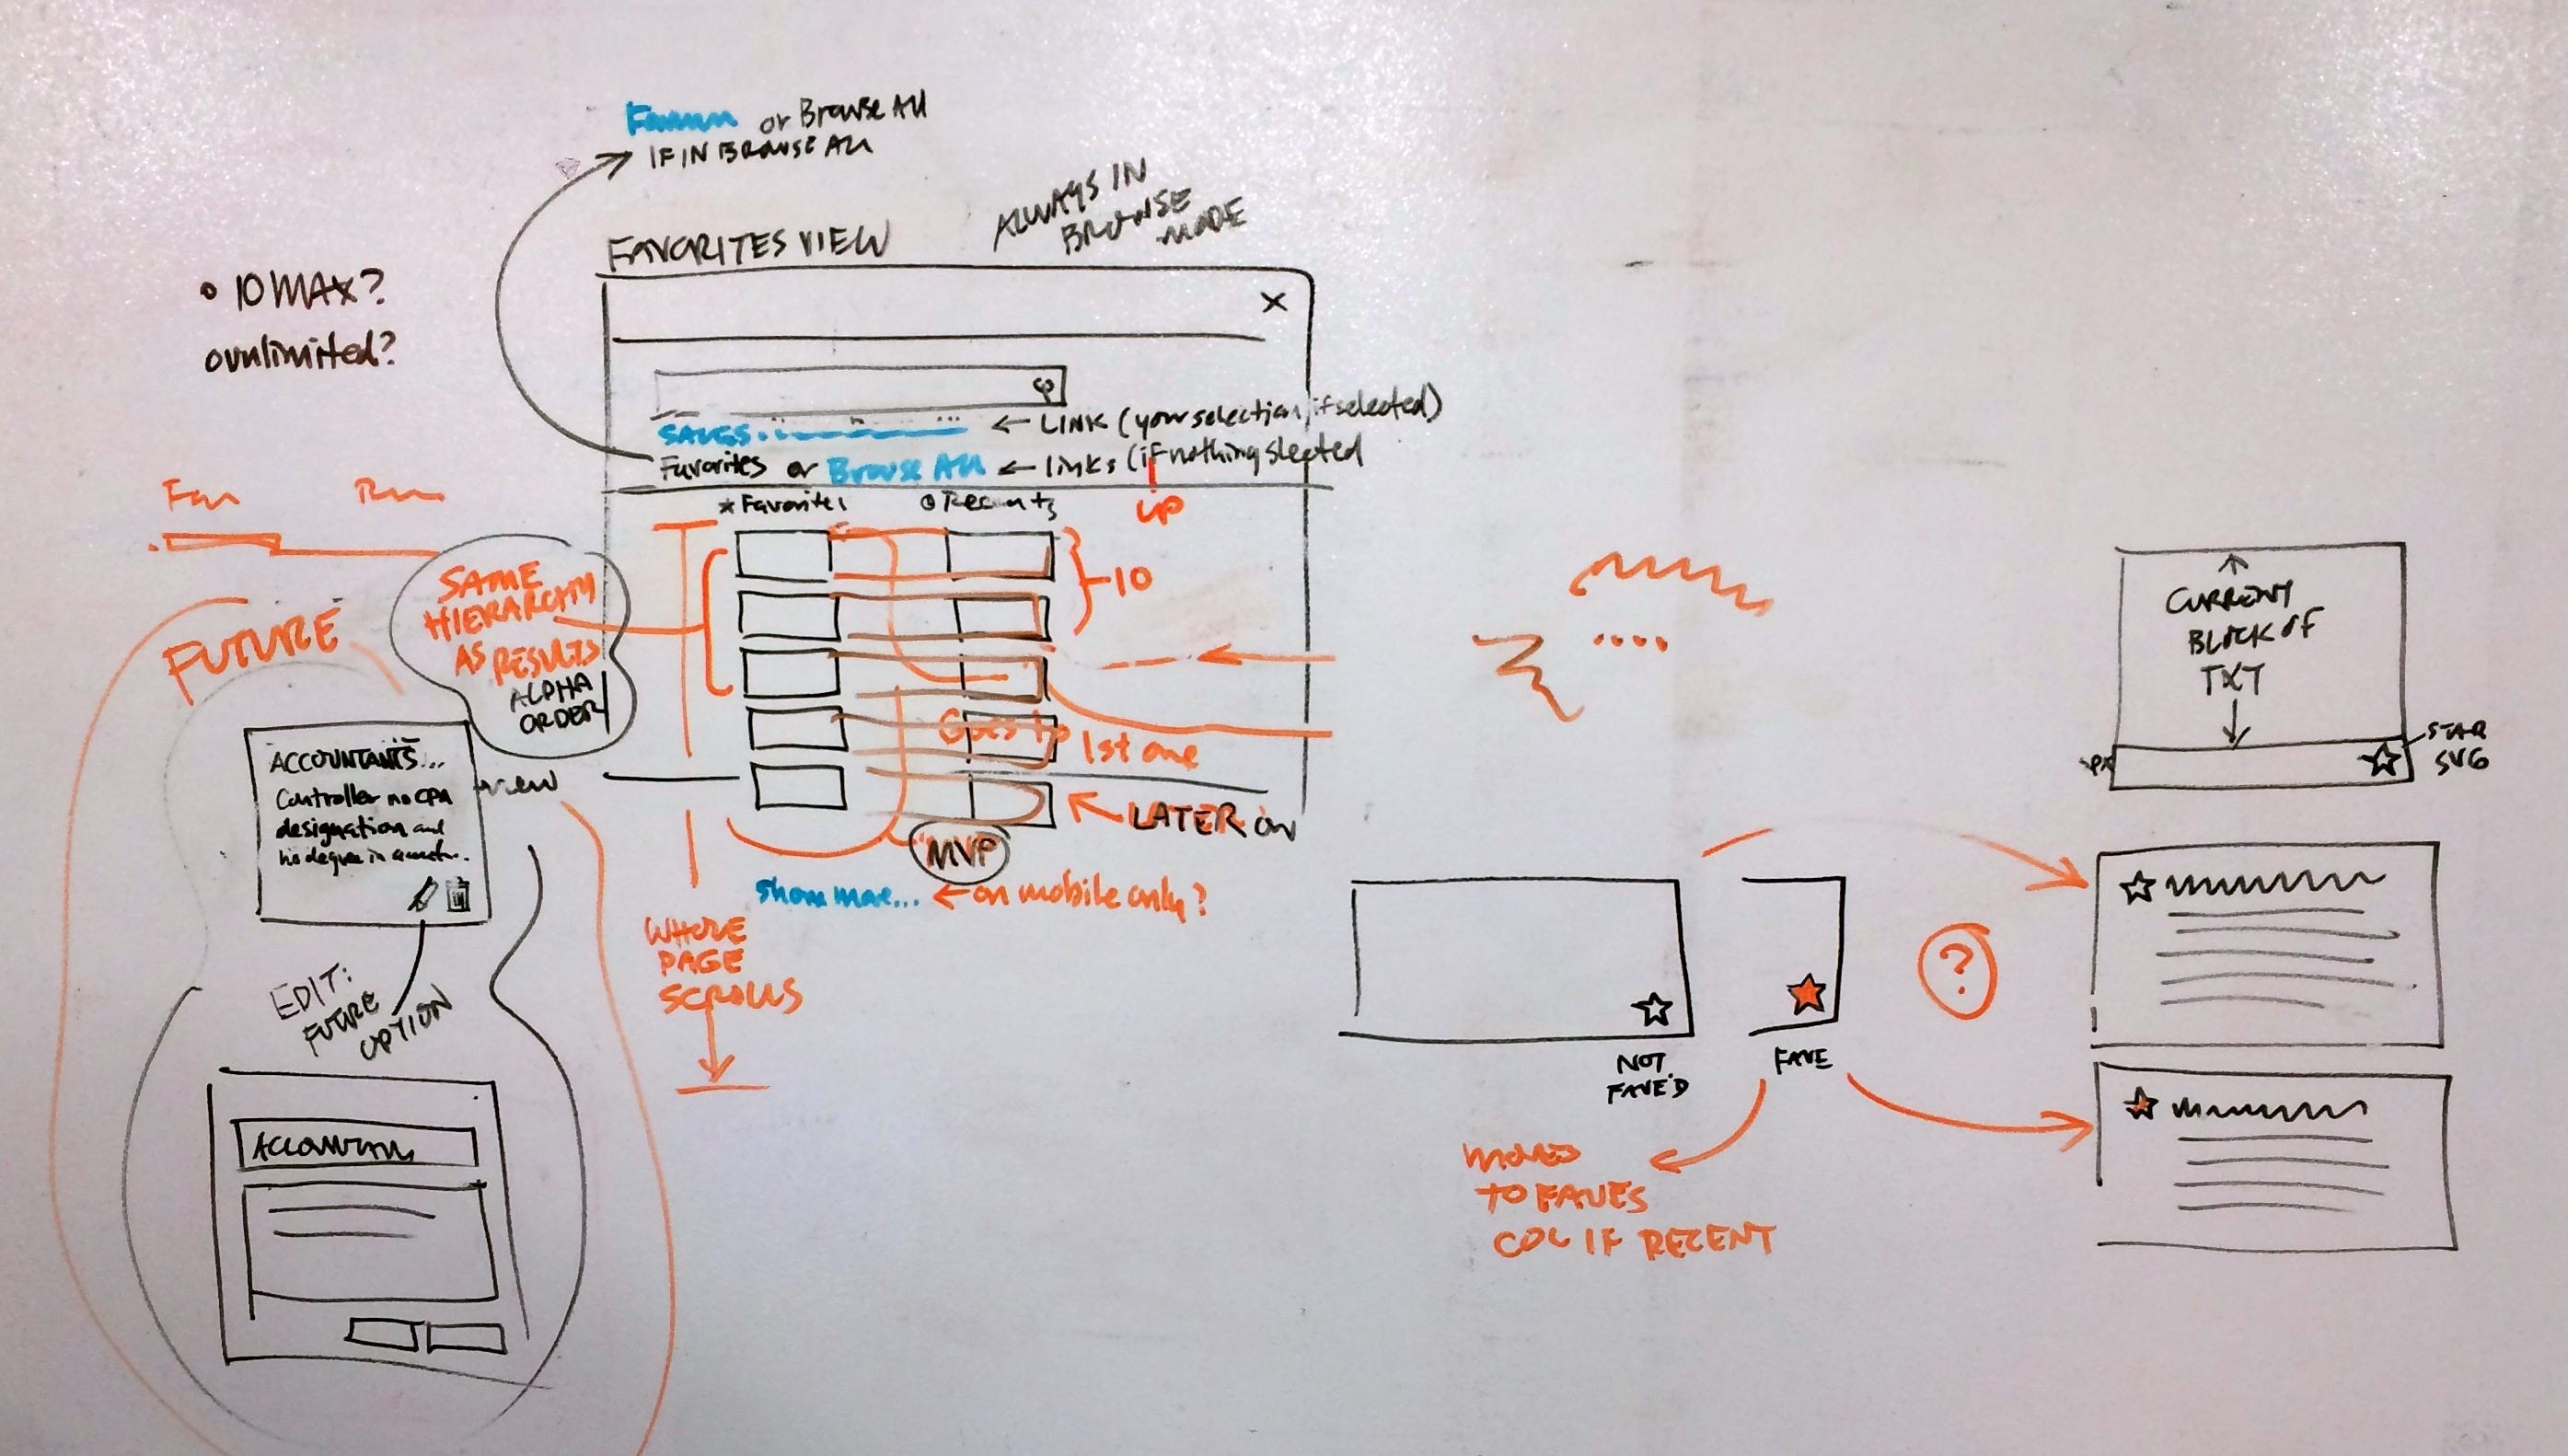 or Browse All
IF IN BROWSE ALL
ALWAYS IN
BROWSE
MODE
FAVORITES VIEW
• 10 MAX?
o unlimited?
X
← LINK (your selection, if selected)
Favorites or Browse All ← links (if nothing slected
★ Favorites
Recents
up
10
SAME
HIERARCHY
AS RESULTS
ALPHA
ORDER
FUTURE
Goes to
1st one
LATER ON
MVP
Show more... ← on mobile only?
WHOLE
PAGE
SCROLLS
ACCOUNTANTS...
Controller no CPA
designation and
his degree in
view
EDIT:
FUTURE
OPTION
CURRENT
BLOCK OF
TXT
STAR
SVG
NOT
FAVE'D
FAVE
?
MOVES
TO FAVES
COL IF RECENT